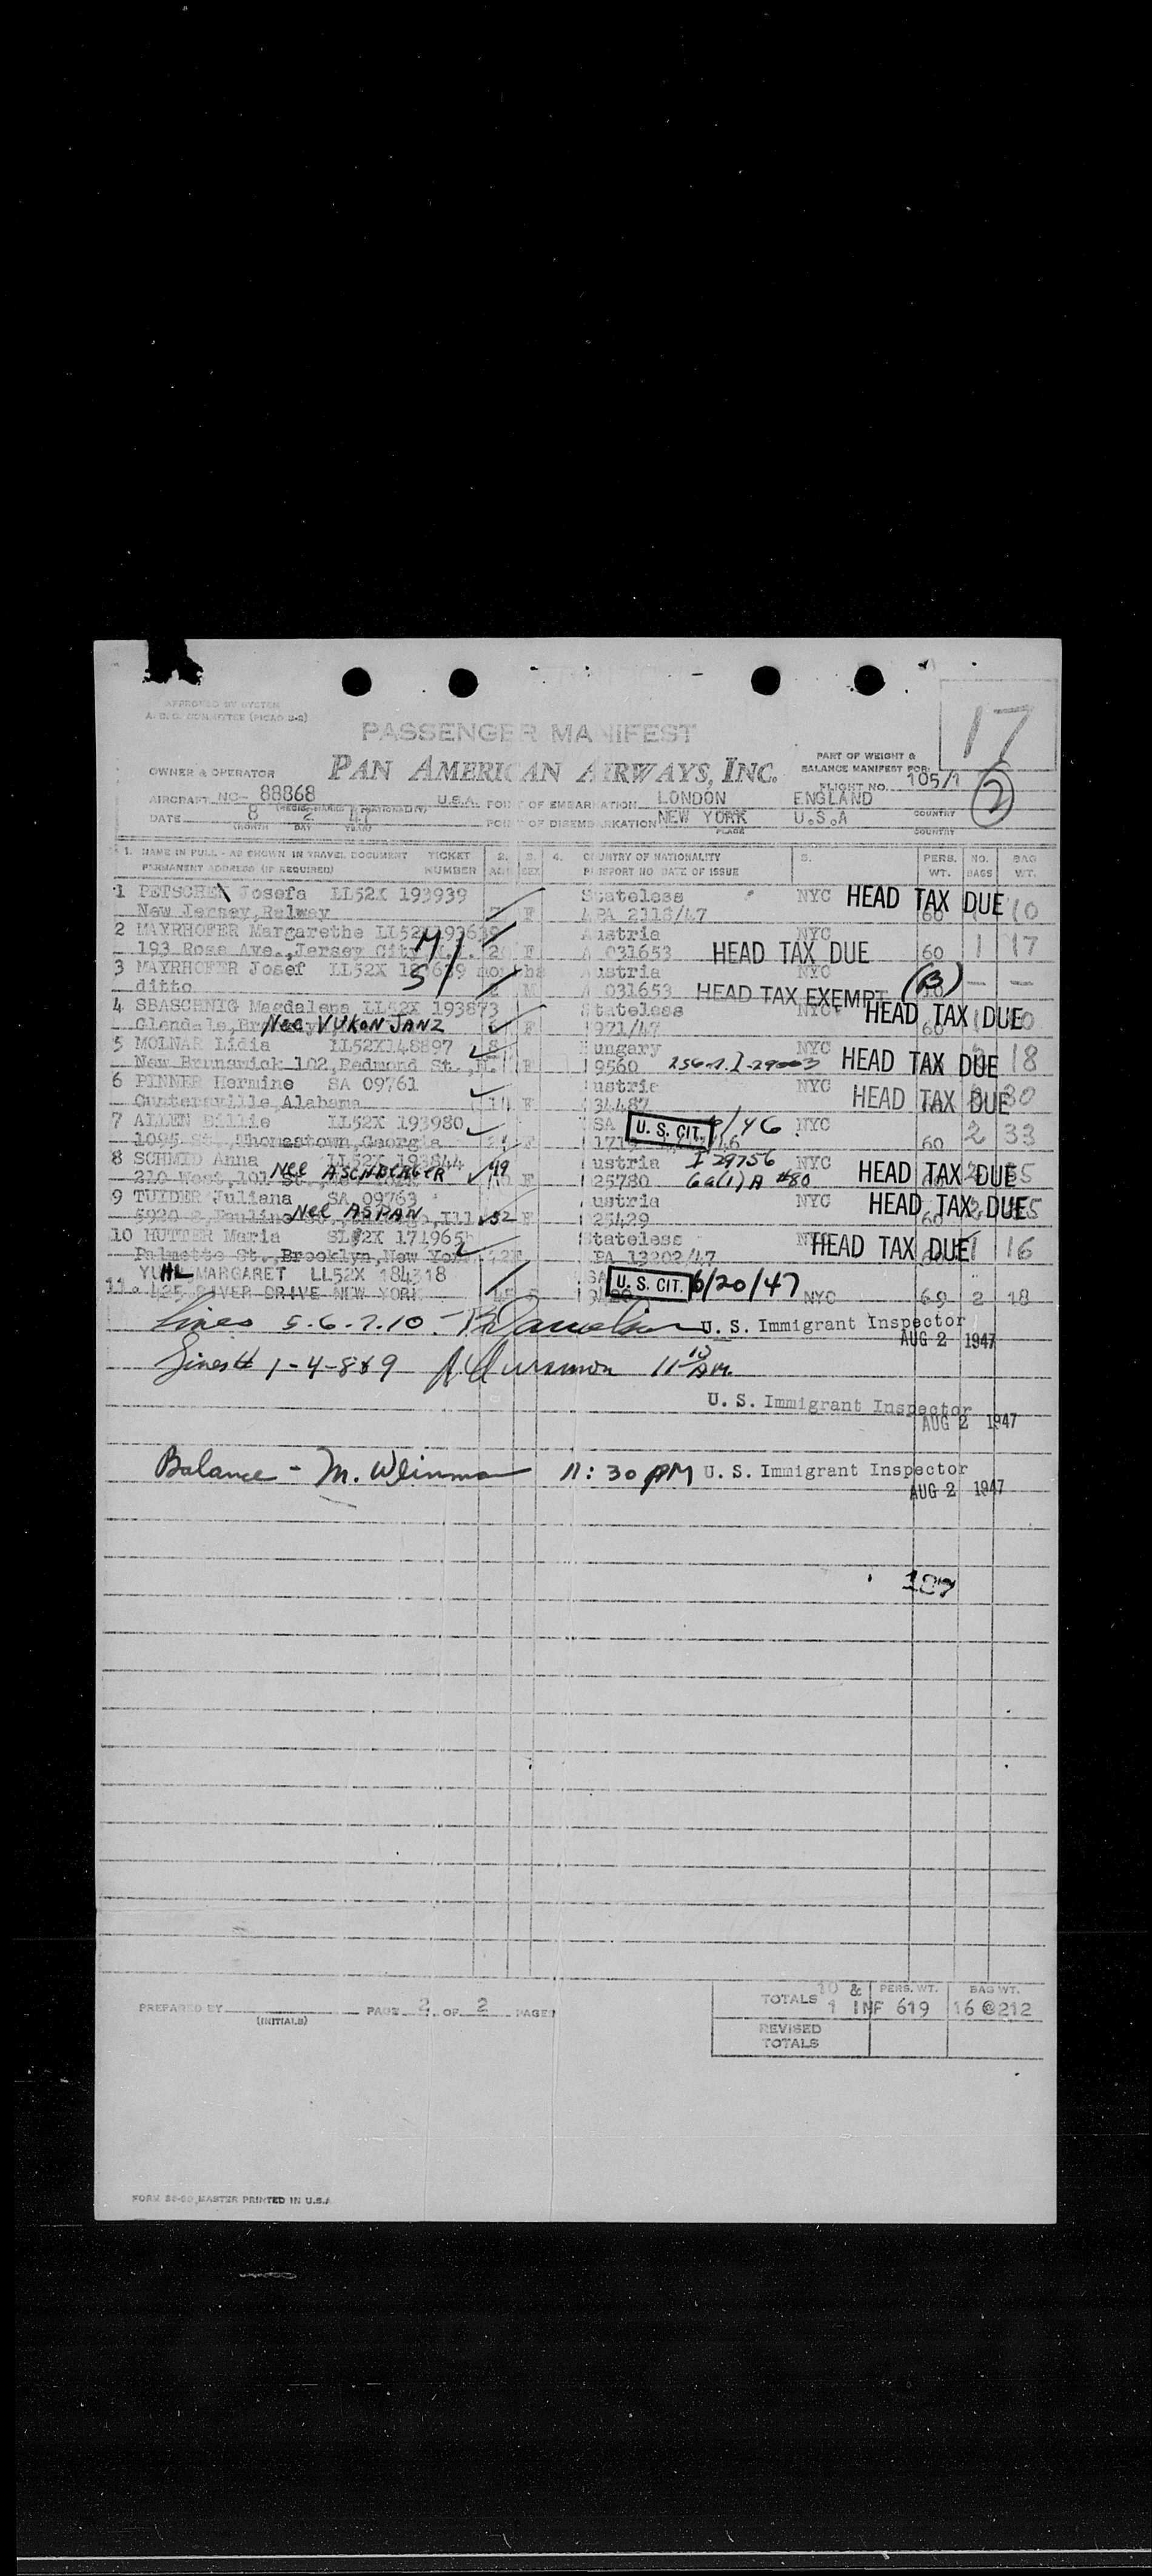 APPROVED BY SYSTEM
A.B.C. COMMITTEE (PICAO D-2)
17
PASSENGER MANIFEST
PAN AMERICAN AIRWAYS, INC.
PART OF WEIGHT &
BALANCE MANIFEST FOR
FLIGHT NO. 105/1
2
OWNER & OPERATOR
AIRCRAFT NC- 88868 U.S.A. POINT OF EMBARKATION LONDON ENGLAND
COUNTRY
DATE 8 2 47 POINT OF DISEMBARKATION NEW YORK U.S.A
(MONTH DAY YEAR) PLACE COUNTRY
1. NAME IN FULL - AS SHOWN IN TRAVEL DOCUMENT TICKET 2. 3. 4. COUNTRY OF NATIONALITY 5. PERS. NO. BAG
PERMANENT ADDRESS (IF REQUIRED) NUMBER AGE SEX PASSPORT NO DATE OF ISSUE WT. BAGS WT.
1 PETSCHEN Josefa LL52X 193939 Stateless NYC HEAD TAX DUE
New Jersey, F 2118/47 60 10
2 MAYRHOFER Margarethe Austria NYC
193 Rose Ave., Jersey City M F 031653 HEAD TAX DUE 60 1 17
3 MAYRHOFER Josef LL52X months Austria NYC
ditto S M 031653 HEAD TAX EXEMPT (B)
4 SBASCHNIG Magdalena LL52X 193873 Stateless NYC HEAD TAX DUE
Glendale, Nee VUKONJANZ F 971/47 60
5 MOLNAR Lidia LL52X148897 Hungary NYC HEAD TAX DUE 18
New Brunswick 102, Redmond St., F 9560
6 PINNER Hermine SA 09761 Austria NYC HEAD TAX DUE 30
Guntersville, Alabama F 34487
7 ALLEN Billie LL52X 193980 USA U. S. CIT. /46 NYC
1095 St., Thomastown, Georgia F 60 2 33
8 SCHMID Anna LL52X 193844 49 Austria I 29756 NYC HEAD TAX DUE
210 West, 101 St., Nee ASCHBERGER F 25780 6a(1)A #80
9 TUIDER Juliana SA 09763 Austria NYC HEAD TAX DUE
5920 S, Paulina Nee ASPAN Ill 52 F 25429 60
10 HUTTER Maria 171965 Stateless HEAD TAX DUE 1 16
Palmetto St., Brooklyn, New York 13202/47
MARGARET LL52X 184318 U. S. CIT. 6/20/47
11. 425 RIVER DRIVE NEW YORK 45 NYC 69 2 18
Lines 5.6.7.10. U. S. Immigrant Inspector
AUG 2 1947
Lines # 1-4-8&9 11 10 AM.
U. S. Immigrant Inspector
AUG 2 1947
Balance - M. Weinman 11:30 AM U. S. Immigrant Inspector
AUG 2 1947
187
PREPARED BY (INITIALS) PAGE 2 OF 2 PAGES
TOTALS 10 & 1 INF PERS. WT. 619 BAG WT. 16 @212
REVISED
TOTALS
MASTER PRINTED IN U.S.A